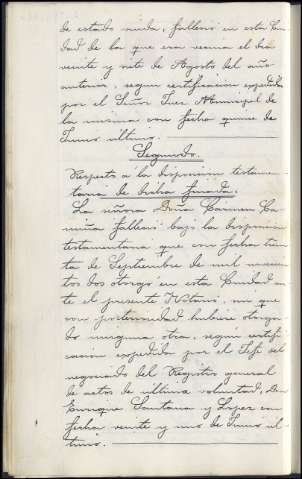 de estado viuda, falleció en esta Ciu-
dad de la que era vecina el dia
veinte y siete de Agosto del año
anterior, segun certificacion expedida
por el Señor Juez Municipal de
la misma con fecha quince de
Junio último.
Segundo.
Respecto a la disposicion testamen-
taria de dicha finada.
La señora Doña Carmen Ca-
falleció bajo la disposicion
testamentaria que con fecha trein-
ta de Septiembre de mil novecien-
tos dos otorgó en esta Ciudad an-
te el presente Notario, sin que
con posterioridad hubiere otorga-
do ninguna otra, segun certifi-
cacion expedida por el Jefe del
negociado del Registro general
de actos de última voluntad, Don
Enrique Santana y Lopez con
fecha veinte y uno de Junio úl-
timo.